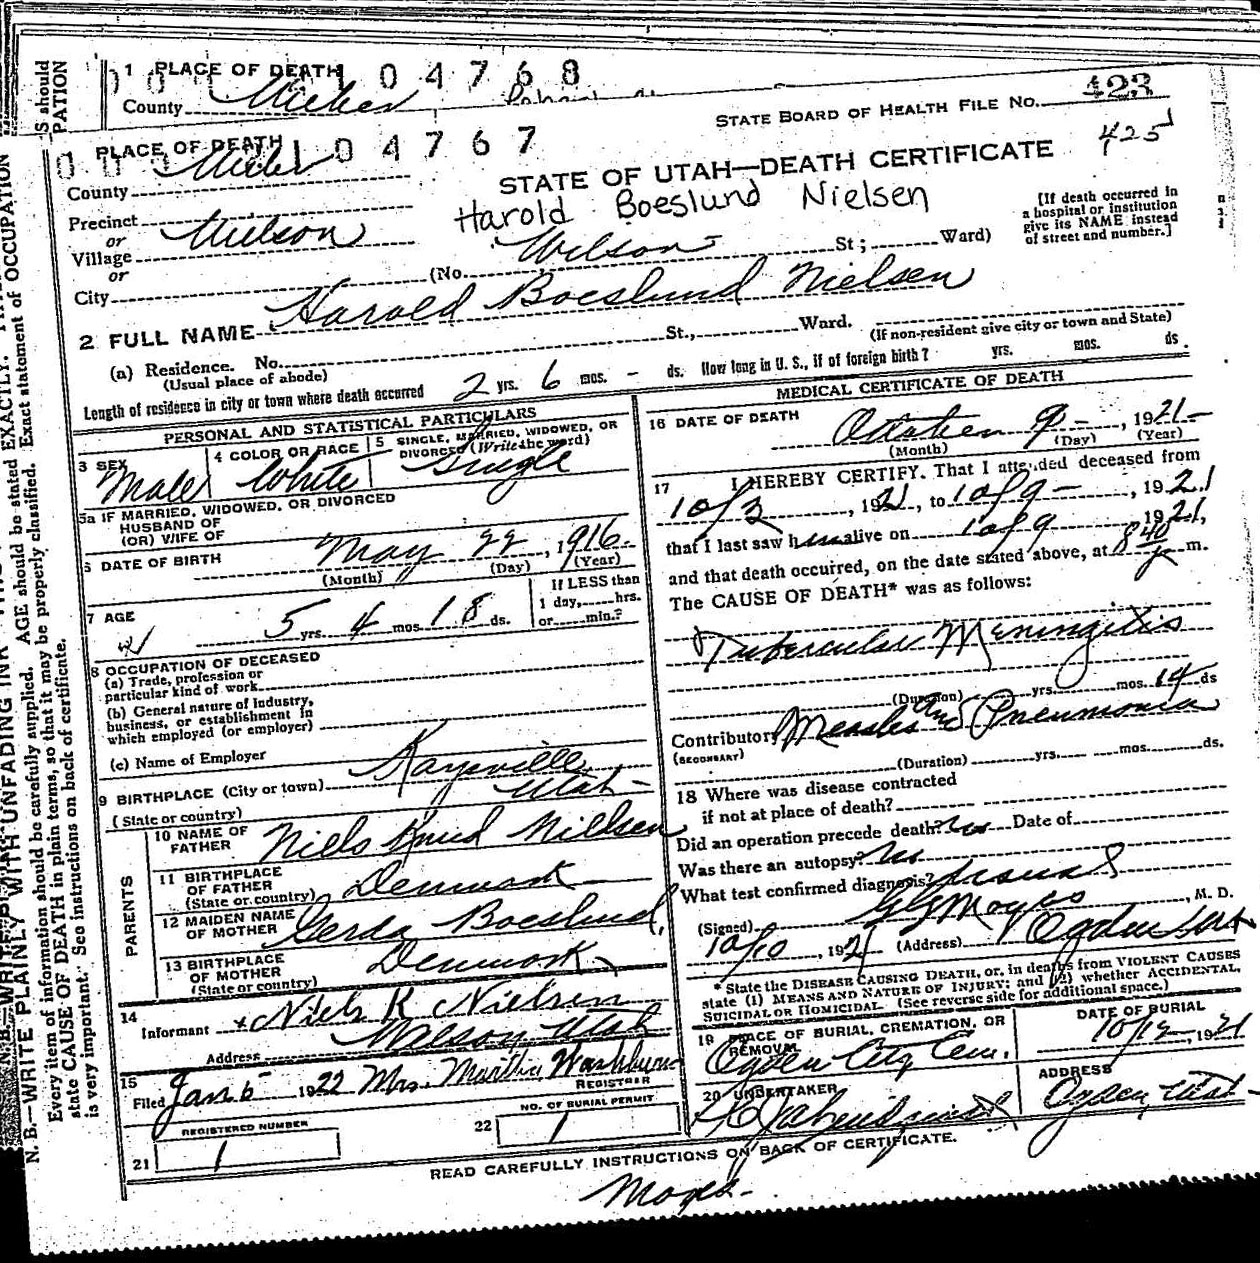 S should
PATION
1 PLACE OF DEATH
104768
County Weber
STATE BOARD OF HEALTH FILE No. 423
425
PLACE OF DEATH
104767
County Weber
STATE OF UTAH—DEATH CERTIFICATE
Harold Boeslund Nielsen
Precinct
or
Village Wilson
or
City
(No. Wilson St; Ward)
[If death occurred in
a hospital or institution
give its NAME instead
of street and number.]
2 FULL NAME Harold Boeslund Nielsen
(a) Residence. No. St., Ward.
(Usual place of abode)
(If non-resident give city or town and State)
Length of residence in city or town where death occurred 2 yrs. 6 mos. - ds. How long in U. S., if of foreign birth? yrs. mos. ds.
PERSONAL AND STATISTICAL PARTICULARS
3 SEX Male
4 COLOR OR RACE White
5 SINGLE, MARRIED, WIDOWED, OR
DIVORCED (Write the word)
Single
5a IF MARRIED, WIDOWED, OR DIVORCED
HUSBAND OF
(OR) WIFE OF
6 DATE OF BIRTH May 22, 1916.
(Month) (Day) (Year)
7 AGE 5 yrs. 4 mos 18 ds.
If LESS than
1 day, hrs.
or min.?
8 OCCUPATION OF DECEASED
(a) Trade, profession or
particular kind of work
(b) General nature of industry,
business, or establishment in
which employed (or employer)
(c) Name of Employer
9 BIRTHPLACE (City or town) Kaysville
(State or country) Utah
PARENTS
10 NAME OF
FATHER Niels Knud Nielsen
11 BIRTHPLACE
OF FATHER
(State or country) Denmark
12 MAIDEN NAME
OF MOTHER Gerda Boeslund
13 BIRTHPLACE
OF MOTHER
(State or country) Denmark
14
Informant Niels K Nielsen
Address Wilson Utah
15
Filed Jan 5 1922 Mrs. Martha Washburn
REGISTRAR
REGISTERED NUMBER
21 1
NO. OF BURIAL PERMIT
22 1
MEDICAL CERTIFICATE OF DEATH
16 DATE OF DEATH October 9-, 1921-
(Month) (Day) (Year)
17 I HEREBY CERTIFY. That I attended deceased from
10/3, 1921, to 10/9-, 1921
that I last saw him alive on 10/9 1921,
and that death occurred, on the date stated above, at 8 40 p m.
The CAUSE OF DEATH* was as follows:
Tubercular Meningitis
(Duration) yrs. mos. 14 ds
Contributory Measles and Pneumonia
(SECONDARY)
(Duration) yrs. mos. ds.
18 Where was disease contracted
if not at place of death?
Did an operation precede death? no Date of
Was there an autopsy? no
What test confirmed diagnosis?
(Signed) Moyes, M. D.
10/10, 1921 (Address) Ogden Utah
*State the DISEASE CAUSING DEATH, or, in deaths from VIOLENT CAUSES
state (1) MEANS AND NATURE OF INJURY; and (2) whether ACCIDENTAL,
SUICIDAL OR HOMICIDAL. (See reverse side for additional space.)
19 PLACE OF BURIAL, CREMATION, OR
REMOVAL
Ogden City Cem.
DATE OF BURIAL
10/12, 1921
20 UNDERTAKER
ADDRESS
Ogden, Utah
READ CAREFULLY INSTRUCTIONS ON BACK OF CERTIFICATE.
Moyes.
N. B.—WRITE PLAINLY WITH UNFADING INK
Every item of information should be carefully supplied. AGE should be stated EXACTLY.
state CAUSE OF DEATH in plain terms, so that it may be properly classified. Exact statement of OCCUPATION
is very important. See instructions on back of certificate.